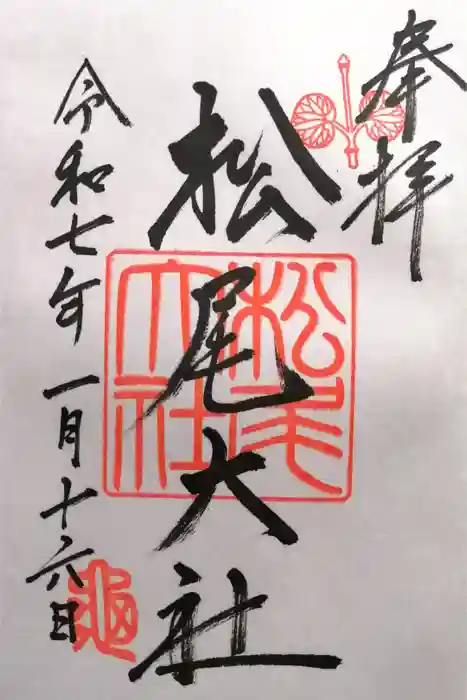 奉拝
松尾大社
松尾大社
令和七年一月十六日
亀